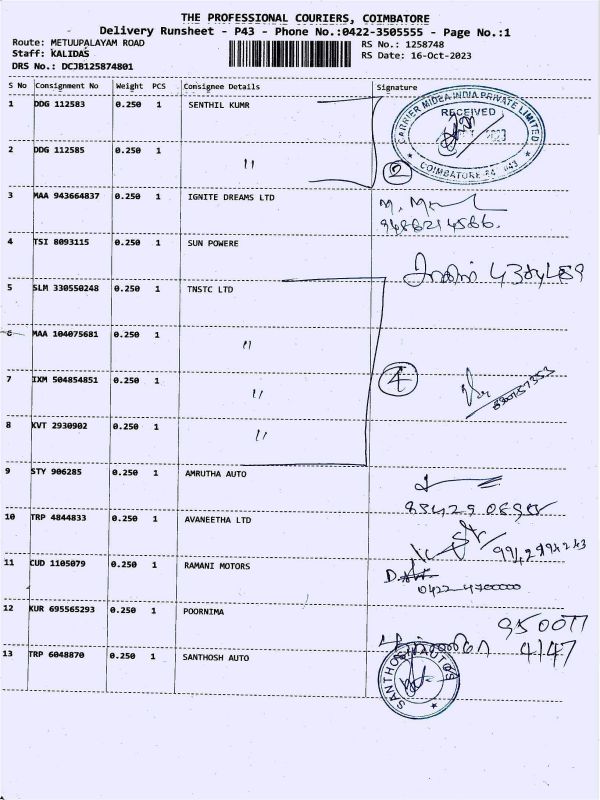 THE PROFESSIONAL COURIERS, COIMBATORE
Delivery Runsheet - P43 - Phone No.:0422-3505555 - Page No.:1
Route: METUUPALAYAM ROAD
Staff: KALIDAS
DRS No.: DCJB125874801
RS No.: 1258748
RS Date: 16-Oct-2023
S No Consignment No Weight PCS Consignee Details Signature
1 DDG 112583 0.250 1 SENTHIL KUMR
CARRIER MIDEA INDIA PRIVATE LIMITED
RECEIVED
COIMBATORE
2 DDG 112585 0.250 1 "
2
3 MAA 943664837 0.250 1 IGNITE DREAMS LTD
4 TSI 8093115 0.250 1 SUN POWERE
5 SLM 330550248 0.250 1 TNSTC LTD
6 MAA 104075681 0.250 1 "
7 IXM 504854851 0.250 1 "
4
8 KVT 2930902 0.250 1 "
9 STY 906285 0.250 1 AMRUTHA AUTO
10 TRP 4844833 0.250 1 AVANEETHA LTD
11 CUD 1105079 0.250 1 RAMANI MOTORS
0422-4700000
12 KUR 695565293 0.250 1 POORNIMA
950077
4147
13 TRP 6048870 0.250 1 SANTHOSH AUTO
SANTHOSH AUTOS